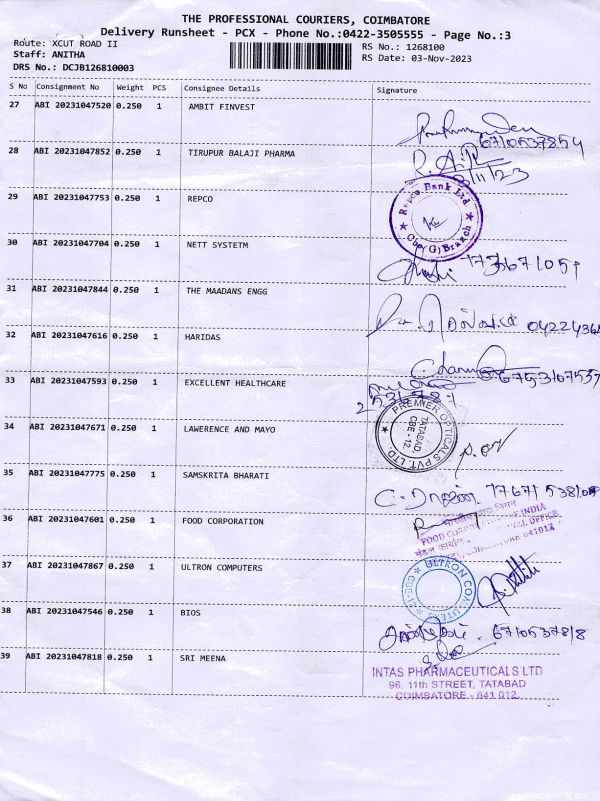 THE PROFESSIONAL COURIERS, COIMBATORE
Delivery Runsheet - PCX - Phone No.:0422-3505555 - Page No.:3
Route: XCUT ROAD II
Staff: ANITHA
DRS No.: DCJB126810003
RS No.: 1268100
RS Date: 03-Nov-2023
S No Consignment No Weight PCS Consignee Details Signature
27 ABI 20231047520 0.250 1 AMBIT FINVEST
28 ABI 20231047852 0.250 1 TIRUPUR BALAJI PHARMA
29 ABI 20231047753 0.250 1 REPCO
Repco Bank Ltd
Cbe(G) Branch
30 ABI 20231047704 0.250 1 NETT SYSTETM
31 ABI 20231047844 0.250 1 THE MAADANS ENGG
32 ABI 20231047616 0.250 1 HARIDAS
33 ABI 20231047593 0.250 1 EXCELLENT HEALTHCARE
34 ABI 20231047671 0.250 1 LAWERENCE AND MAYO
PREMIER OPTICALS PVT. LTD.
TATABAD
CBE - 12.
35 ABI 20231047775 0.250 1 SAMSKRITA BHARATI
36 ABI 20231047601 0.250 1 FOOD CORPORATION
37 ABI 20231047867 0.250 1 ULTRON COMPUTERS
38 ABI 20231047546 0.250 1 BIOS
39 ABI 20231047818 0.250 1 SRI MEENA
INTAS PHARMACEUTICALS LTD
96, 11th STREET, TATABAD
COIMBATORE - 641 012.